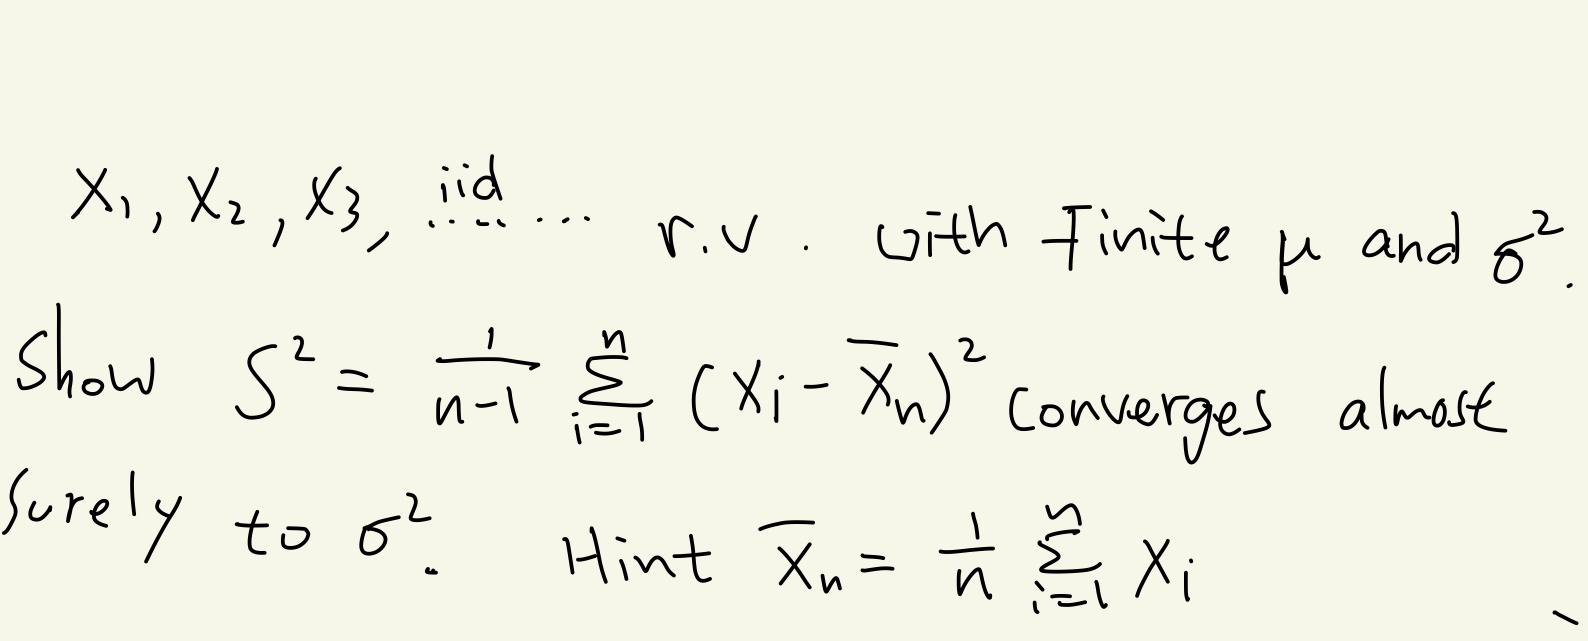 X₁, X₂, X₃, ..iid.. ... r.v. with finite μ and σ².
Show S² = 1/(n-1) Σ_{i=1}^{n} (Xᵢ - X̄ₙ)² converges almost
surely to σ². Hint X̄ₙ = 1/n Σ_{i=1}^{n} Xᵢ